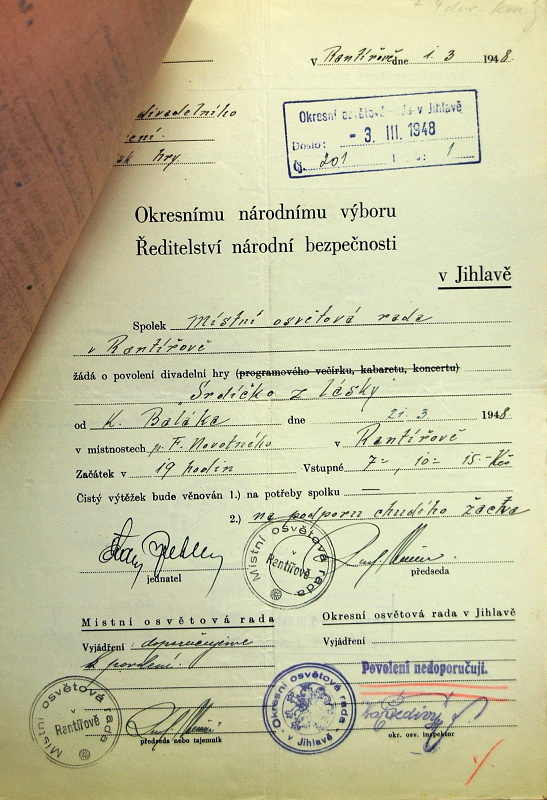 V Rantířově dne 1. 3 1948.
divadelního
hry
Okresní osvětová rada v Jihlavě
Došlo: - 3. III. 1948
Čj. 201 1
Okresnímu národnímu výboru
Ředitelství národní bezpečnosti
v Jihlavě
Spolek Místní osvětová rada
v Rantířově
žádá o povolení divadelní hry (programového večírku, kabaretu, koncertu)
"Srdíčko z lásky"
od K. Baláka dne 21. 3 1948
v místnostech p. F. Novotného v Rantířově
Začátek v 19 hodin Vstupné 7=, 10= 15.- Kčs
Čistý výtěžek bude věnován 1.) na potřeby spolku —
2.) na podporu chudého žactva
jednatel
Místní osvětová rada v Rantířově
předseda
Místní osvětová rada
Okresní osvětová rada v Jihlavě
Vyjádření: doporučujeme
k povolení.
Vyjádření
Povolení nedoporučuji.
Místní osvětová rada v Rantířově
předseda nebo tajemník
Okresní osvětová rada v Jihlavě
okr. osv. inspektor